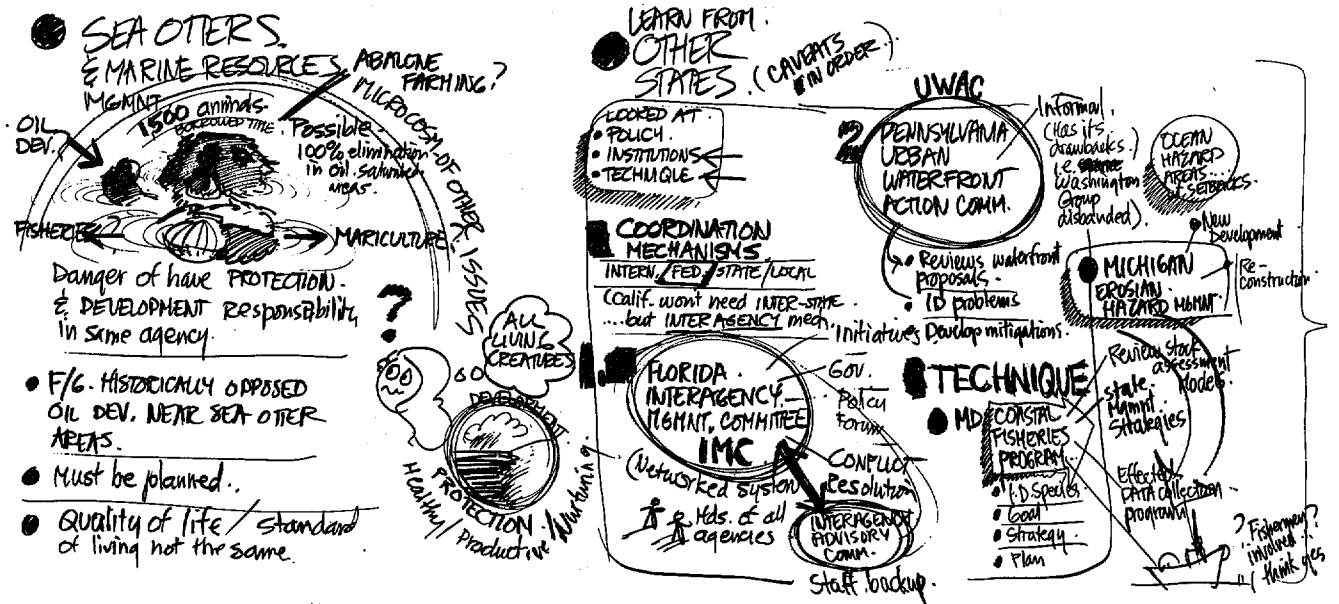 SEA OTTERS.
& MARINE RESOURCES
MGMNT.
1500 animals.
BORROWED TIME.
ABALONE
FARMING?
MICROCOSM OF OTHER ISSUES
OIL
DEV.
Possible
100% elimination
in oil saturated
areas.
FISHERIES?
MARICULTURE
Danger of have PROTECTION.
& DEVELOPMENT Responsibility
in same agency.
F/G. HISTORICALLY OPPOSED
OIL DEV. NEAR SEA OTTER
AREAS.
Must be planned..
Quality of life / Standard
of living not the same.
?
ALL
LIVING
CREATURES
DEVELOPMENT
PROTECTION
Healthy / Productive / Nurturing
LEARN FROM.
OTHER
STATES.
(CAVEATS
IN ORDER.)
LOOKED AT
POLICY.
INSTITUTIONS
TECHNIQUE
1 COORDINATION
MECHANISMS
INTERN. / FED. / STATE / LOCAL
(Calif. wont need INTER-STATE.
....but INTERAGENCY mech.
1.
FLORIDA.
INTERAGENCY.
MGMNT. COMMITTEE
IMC
Initiatives
Gov.
Policy
Forum
CONFLICT
Resolution
(Networked system
Hds. of all
agencies
INTERAGENCY
ADVISORY
COMM.
Staff backup.
2
UWAC
PENNSYLVANIA
URBAN
WATERFRONT
ACTION COMM.
Informal.
(Has its
drawbacks.)
i.e.
Washington
Group
disbanded).
Reviews waterfront
proposals.
I.D problems
Develop mitigations.
OCEAN
HAZARD
AREAS...
SETBACKS.
New
Development
Re-
Construction
MICHIGAN
EROSIAN
HAZARD MGMNT.
TECHNIQUE
MD
COASTAL
FISHERIES
PROGRAM.
I.D Species
Goal
Strategy
Plan
Review stock
assessment
Models.
State
Mgmnt
Strategies
Effected
DATA collection
program
? Fishermen?
involved...
I think yes